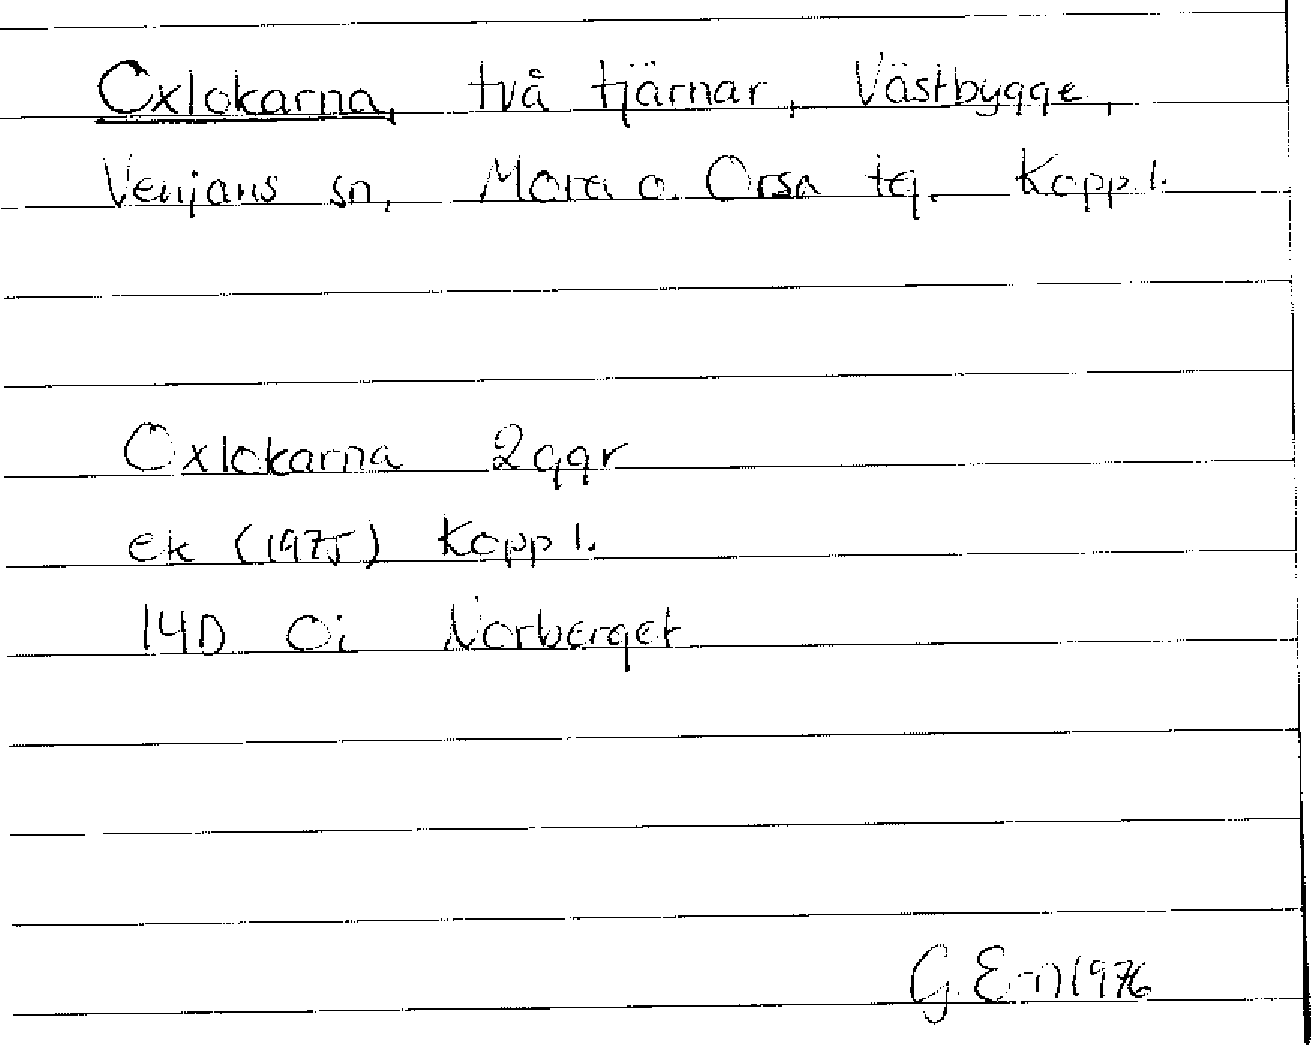 Oxlokarna, två tjärnar, Västbygge,
Venjans sn, Mora o. Orsa tg. Kopp l.
Oxlokarna 2ggr
ek (1975) Kopp l.
14D 0i Norberget
G. E-n 1976